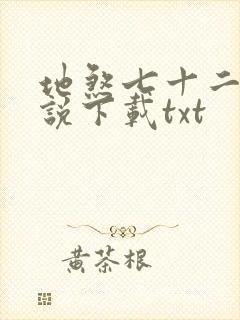 地煞七十二
說下載txt
黃茶根